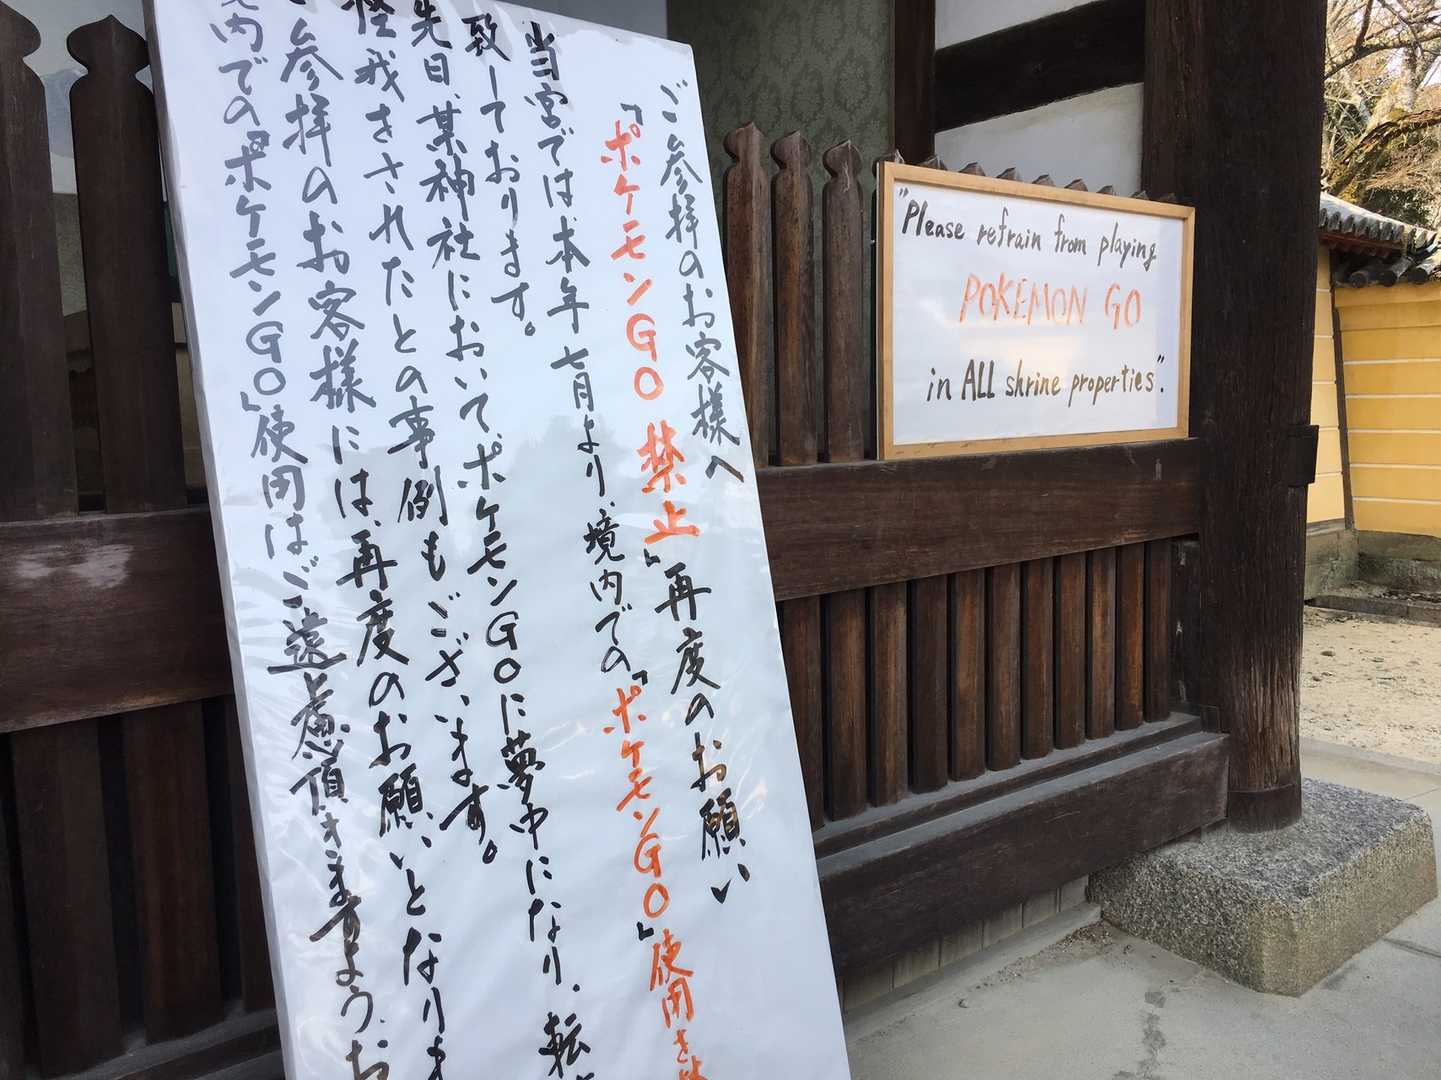 ご参拝のお客様へ
「ポケモンGO禁止」再度のお願い
当宮では本年七月より、境内での「ポケモンGO」使用を
致しております。
先日、某神社においてポケモンGOに夢中になり、転
怪我をされたとの事例もございます。
ご参拝のお客様には、再度のお願いとなりま
境内での『ポケモンGO』使用はご遠慮頂きますよう、お
"Please refrain from playing
POKEMON GO
in ALL shrine properties".